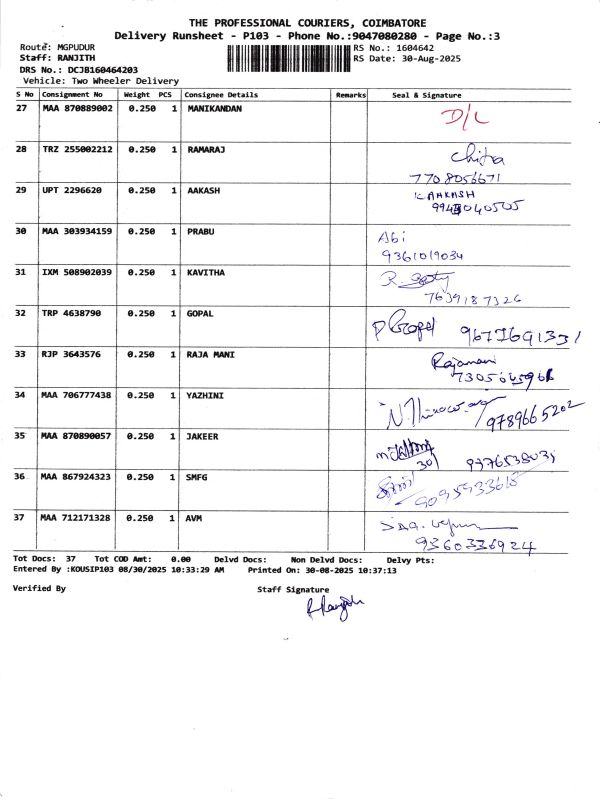 THE PROFESSIONAL COURIERS, COIMBATORE
Delivery Runsheet - P103 - Phone No.:9047080280 - Page No.:3
Route: MGPUDUR RS No.: 1604642
Staff: RANJITH RS Date: 30-Aug-2025
DRS No.: DCJB160464203
Vehicle: Two Wheeler Delivery
S No Consignment No Weight PCS Consignee Details Remarks Seal & Signature
27 MAA 870889002 0.250 1 MANIKANDAN D/L
28 TRZ 255002212 0.250 1 RAMARAJ Chitra
7708056671
29 UPT 2296620 0.250 1 AAKASH K AAKASH
30 MAA 303934159 0.250 1 PRABU Abi
9361019034
31 IXM 508902039 0.250 1 KAVITHA
7639187326
32 TRP 4638790 0.250 1 GOPAL P Gopal
33 RJP 3643576 0.250 1 RAJA MANI Rajamani
34 MAA 706777438 0.250 1 YAZHINI
9789665202
35 MAA 870890057 0.250 1 JAKEER
36 MAA 867924323 0.250 1 SMFG
37 MAA 712171328 0.250 1 AVM
9360336924
Tot Docs: 37 Tot COD Amt: 0.00 Delvd Docs: Non Delvd Docs: Delvy Pts:
Entered By :KOUSIP103 08/30/2025 10:33:29 AM Printed On: 30-08-2025 10:37:13
Verified By Staff Signature